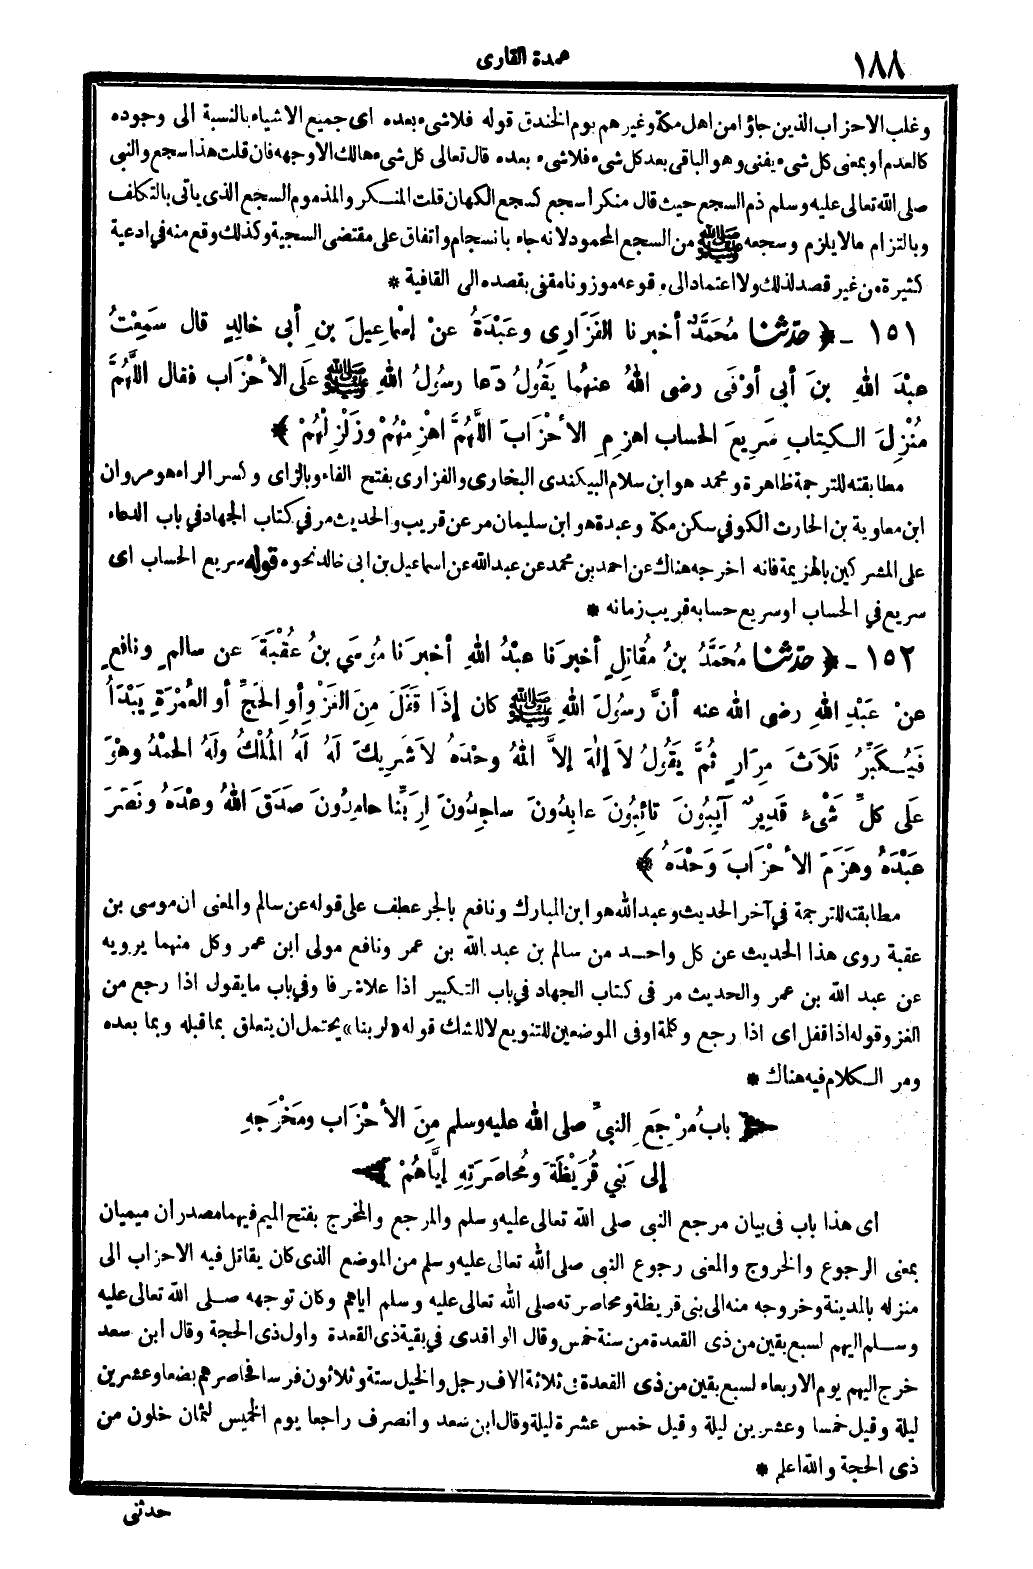 ١٨٨
عمدة القارى
وغلب الاحزاب الذين جاؤا من اهل مكة وغيرهم يوم الخندق قوله فلا شىء بعده اى جميع الاشياء بالنسبة الى وجوده
كالعدم أو بمعنى كل شىء يفنى وهو الباقى بعد كل شىء فلا شىء بعده قال تعالى كل شىء هالك الا وجهه فان قلت هذا سجع والنبى
صلى الله تعالى عليه وسلم ذم السجع حيث قال منكرا أسجع كسجع الكهان قلت المنكر والمذموم السجع الذى ياتى بالتكلف
وبالتزام مالا يلزم وسجعه ﷺ من السجع المحمود لانه جاء بانسجام واتفاق على مقتضى السجية وكذلك وقع منه في ادعية
كثيرة من غير قصد لذلك ولا اعتماد الى وقوعه موزونا مقفى بقصده الى القافية *
١٥١ ـ ﴿ حدثنا مُحَمَّدٌ أخبرنا الفَزَارِى وعَبْدَةُ عنْ إسْماعِيلَ بنِ أبى خالِدٍ قال سَمِعْتُ
عبْدَ اللهِ بنَ أبى أوْفَى رضى اللهُ عنهُما يَقُولُ دَعا رسُولُ اللهِ ﷺ علَى الأحْزَاب فقال اللَّهُمَّ
مُنْزِلَ الكِتابِ سَرِيعَ الحساب اهزِمِ الأحْزَابَ اللَّهُمَّ اهْزِمْهُمْ وزَلْزِلْهُمْ ﴾
مطابقته للترجمة ظاهرة ومحمد هو ابن سلام البيكندى البخارى والفزارى بفتح الفاء وبالزاى وكسر الراء هو مروان
ابن معاوية بن الحارث الكوفي سكن مكة وعبدة هو ابن سليمان مر عن قريب والحديث مر في كتاب الجهاد في باب الدعاء
على المشركين بالهزيمة فانه اخرجه هناك عن احمد بن محمد عن عبد الله عن اسماعيل بن ابى خالد نحوه قوله سريع الحساب اى
سريع في الحساب او سريع حسابه قريب زمانه *
١٥٢ ـ ﴿ حدثنا مُحَمَّدُ بنُ مُقاتِلٍ أخبرَنا عبْدُ اللهِ أخبرَنا مُوسَي بنُ عُقْبَةَ عن سالمٍ ونافعٍ
عنْ عَبْدِ اللهِ رضى الله عنه أنَّ رسُولَ اللهِ ﷺ كان إذَا قَفَلَ مِنَ الغَزْوِ أوِ الحَجِّ أوِ العُمْرَةِ يَبْدَأُ
فَيُكَبِّرُ ثَلاَثَ مِرَارٍ ثُمَّ يَقُولُ لاَ إلَهَ إلاَّ اللهُ وحْدَهُ لاَ شَرِيكَ لَهُ لَهُ المُلْكُ ولَهُ الحمْدُ وهْوَ
عَلَى كلِّ شَىْءٍ قَدِيرٌ آيِبُونَ تائِبُونَ عابِدُونَ ساجِدُونَ لِرَبِّنا حامِدُونَ صَدَقَ اللهُ وعْدَهُ ونَصَرَ
عَبْدَهُ وهَزَمَ الأحْزَابَ وَحْدَهُ ﴾
مطابقته للترجمة في آخر الحديث وعبد الله هو ابن المبارك ونافع بالجر عطف على قوله عن سالم والمعنى ان موسى بن
عقبة روى هذا الحديث عن كل واحد من سالم بن عبد الله بن عمر ونافع مولى ابن عمر وكل منهما يرويه
عن عبد الله بن عمر والحديث مر فى كتاب الجهاد في باب التكبير اذا علا شرفا وفي باب ما يقول اذا رجع من
الغزو وقوله اذا قفل اى اذا رجع وكلمة او فى الموضعين للتنويع لا للشك قوله «لربنا» يحتمل ان يتعلق بما قبله وبما بعده
ومر الكلام فيه هناك *
﴿ بابُ مَرْجَعِ النبىِّ صلى الله عليه وسلم مِنَ الأحْزَابِ ومَخْرَجِهِ
إلى بَنِي قُرَيْظَةَ ومُحاصَرَتِهِ إيَّاهُمْ ﴾
اى هذا باب فى بيان مرجع النبى صلى الله تعالى عليه وسلم والمرجع والمخرج بفتح الميم فيهما مصدران ميميان
بمعنى الرجوع والخروج والمعنى رجوع النبى صلى الله تعالى عليه وسلم من الموضع الذى كان يقاتل فيه الاحزاب الى
منزله بالمدينة وخروجه منه الى بنى قريظة ومحاصرته صلى الله تعالى عليه وسلم اياهم وكان توجهه صلى الله تعالى عليه
وسلم اليهم لسبع بقين من ذى القعدة من سنة خمس وقال الواقدى في بقية ذى القعدة واول ذى الحجة وقال ابن سعد
خرج اليهم يوم الاربعاء لسبع بقين من ذى القعدة فى ثلاثة الاف رجل والخيل ستة وثلاثون فرسا فحاصرهم بضعا وعشرين
ليلة وقيل خمسا وعشرين ليلة وقيل خمس عشرة ليلة وقال ابن سعد وانصرف راجعا يوم الخميس لثمان خلون من
ذى الحجة والله اعلم *
حدثنى